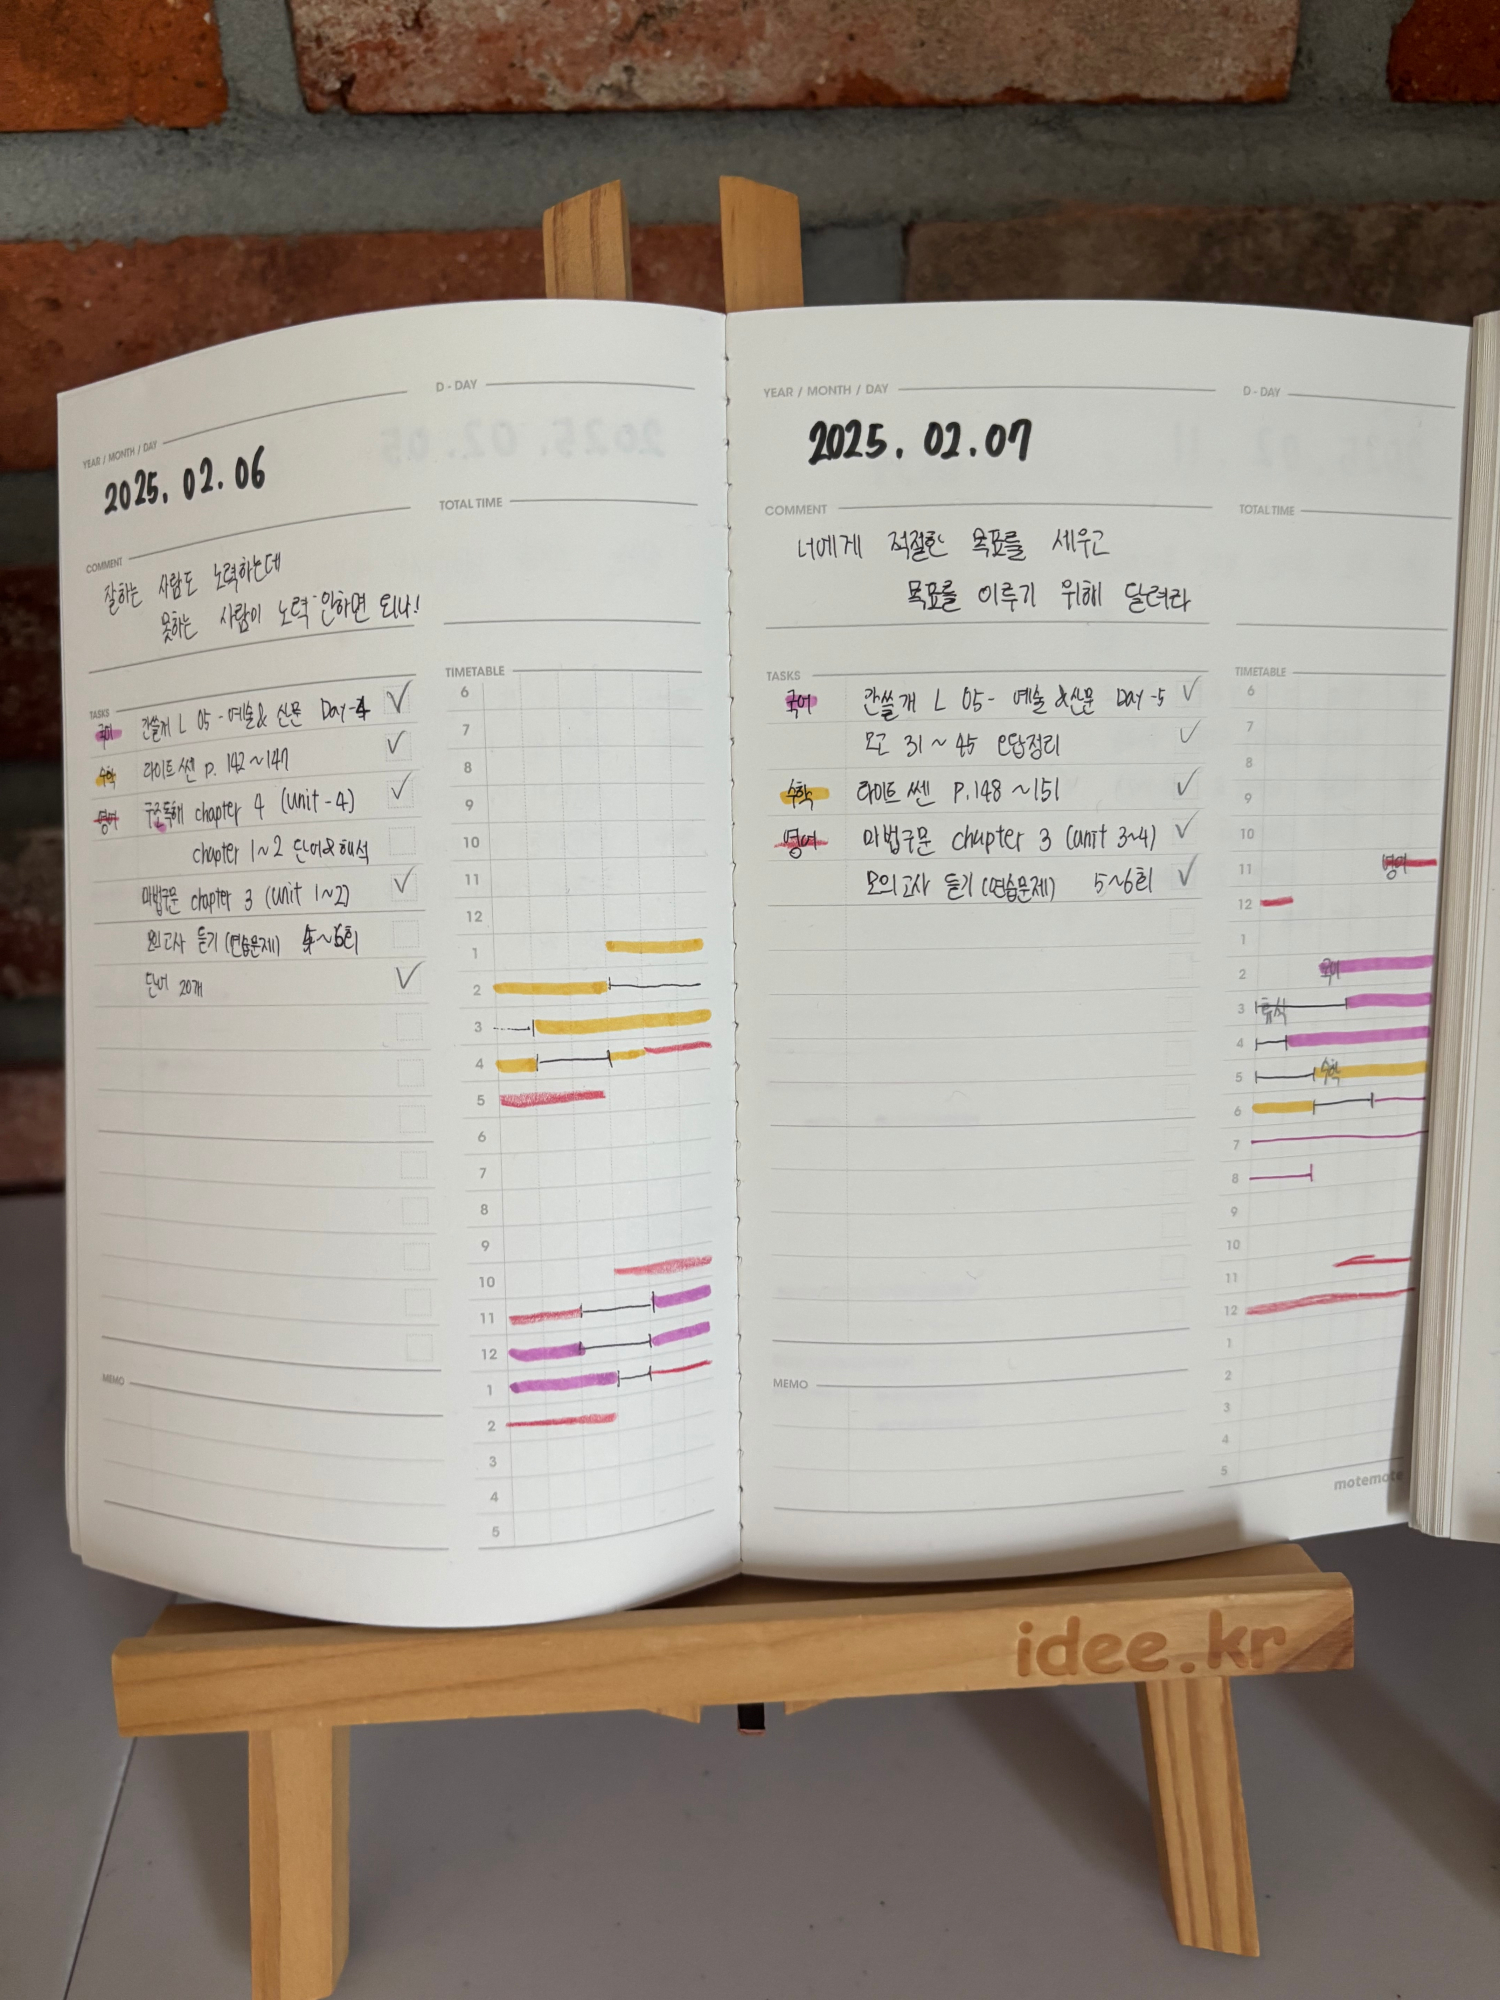 YEAR / MONTH / DAY
D - DAY
2025. 02. 06
TOTAL TIME
COMMENT
잘하는 사람도 노력하는데
못하는 사람이 노력 안하면 되나!
TASKS
국어 간쓸개 L 05 - 예술 & 산문 Day-4
수학 라이트 쎈 P. 142 ~ 147
영어 구조독해 chapter 4 (Unit - 4)
chapter 1~2 단어&해석
마법구문 chapter 3 (Unit 1~2)
모의고사 듣기 (연습문제) ~6회
단어 20개
TIMETABLE
6
7
8
9
10
11
12
1
2
3
4
5
6
7
8
9
10
11
12
1
2
3
4
5
MEMO
YEAR / MONTH / DAY
D - DAY
2025. 02. 07
COMMENT
TOTAL TIME
너에게 적절한 목표를 세우고
목표를 이루기 위해 달려라
TASKS
국어 간쓸개 L 05- 예술 &산문 Day -5
모고 31 ~ 45 오답정리
수학 라이트 쎈 P.148 ~151
영어 마법구문 chapter 3 (Unit 3~4)
모의고사 듣기 (연습문제) 5~6회
TIMETABLE
6
7
8
9
10
11 영어
12
1
2 국어
3 휴식
4
5 수학
6
7
8
9
10
11
12
1
2
3
4
5
MEMO
motemote
idee.kr